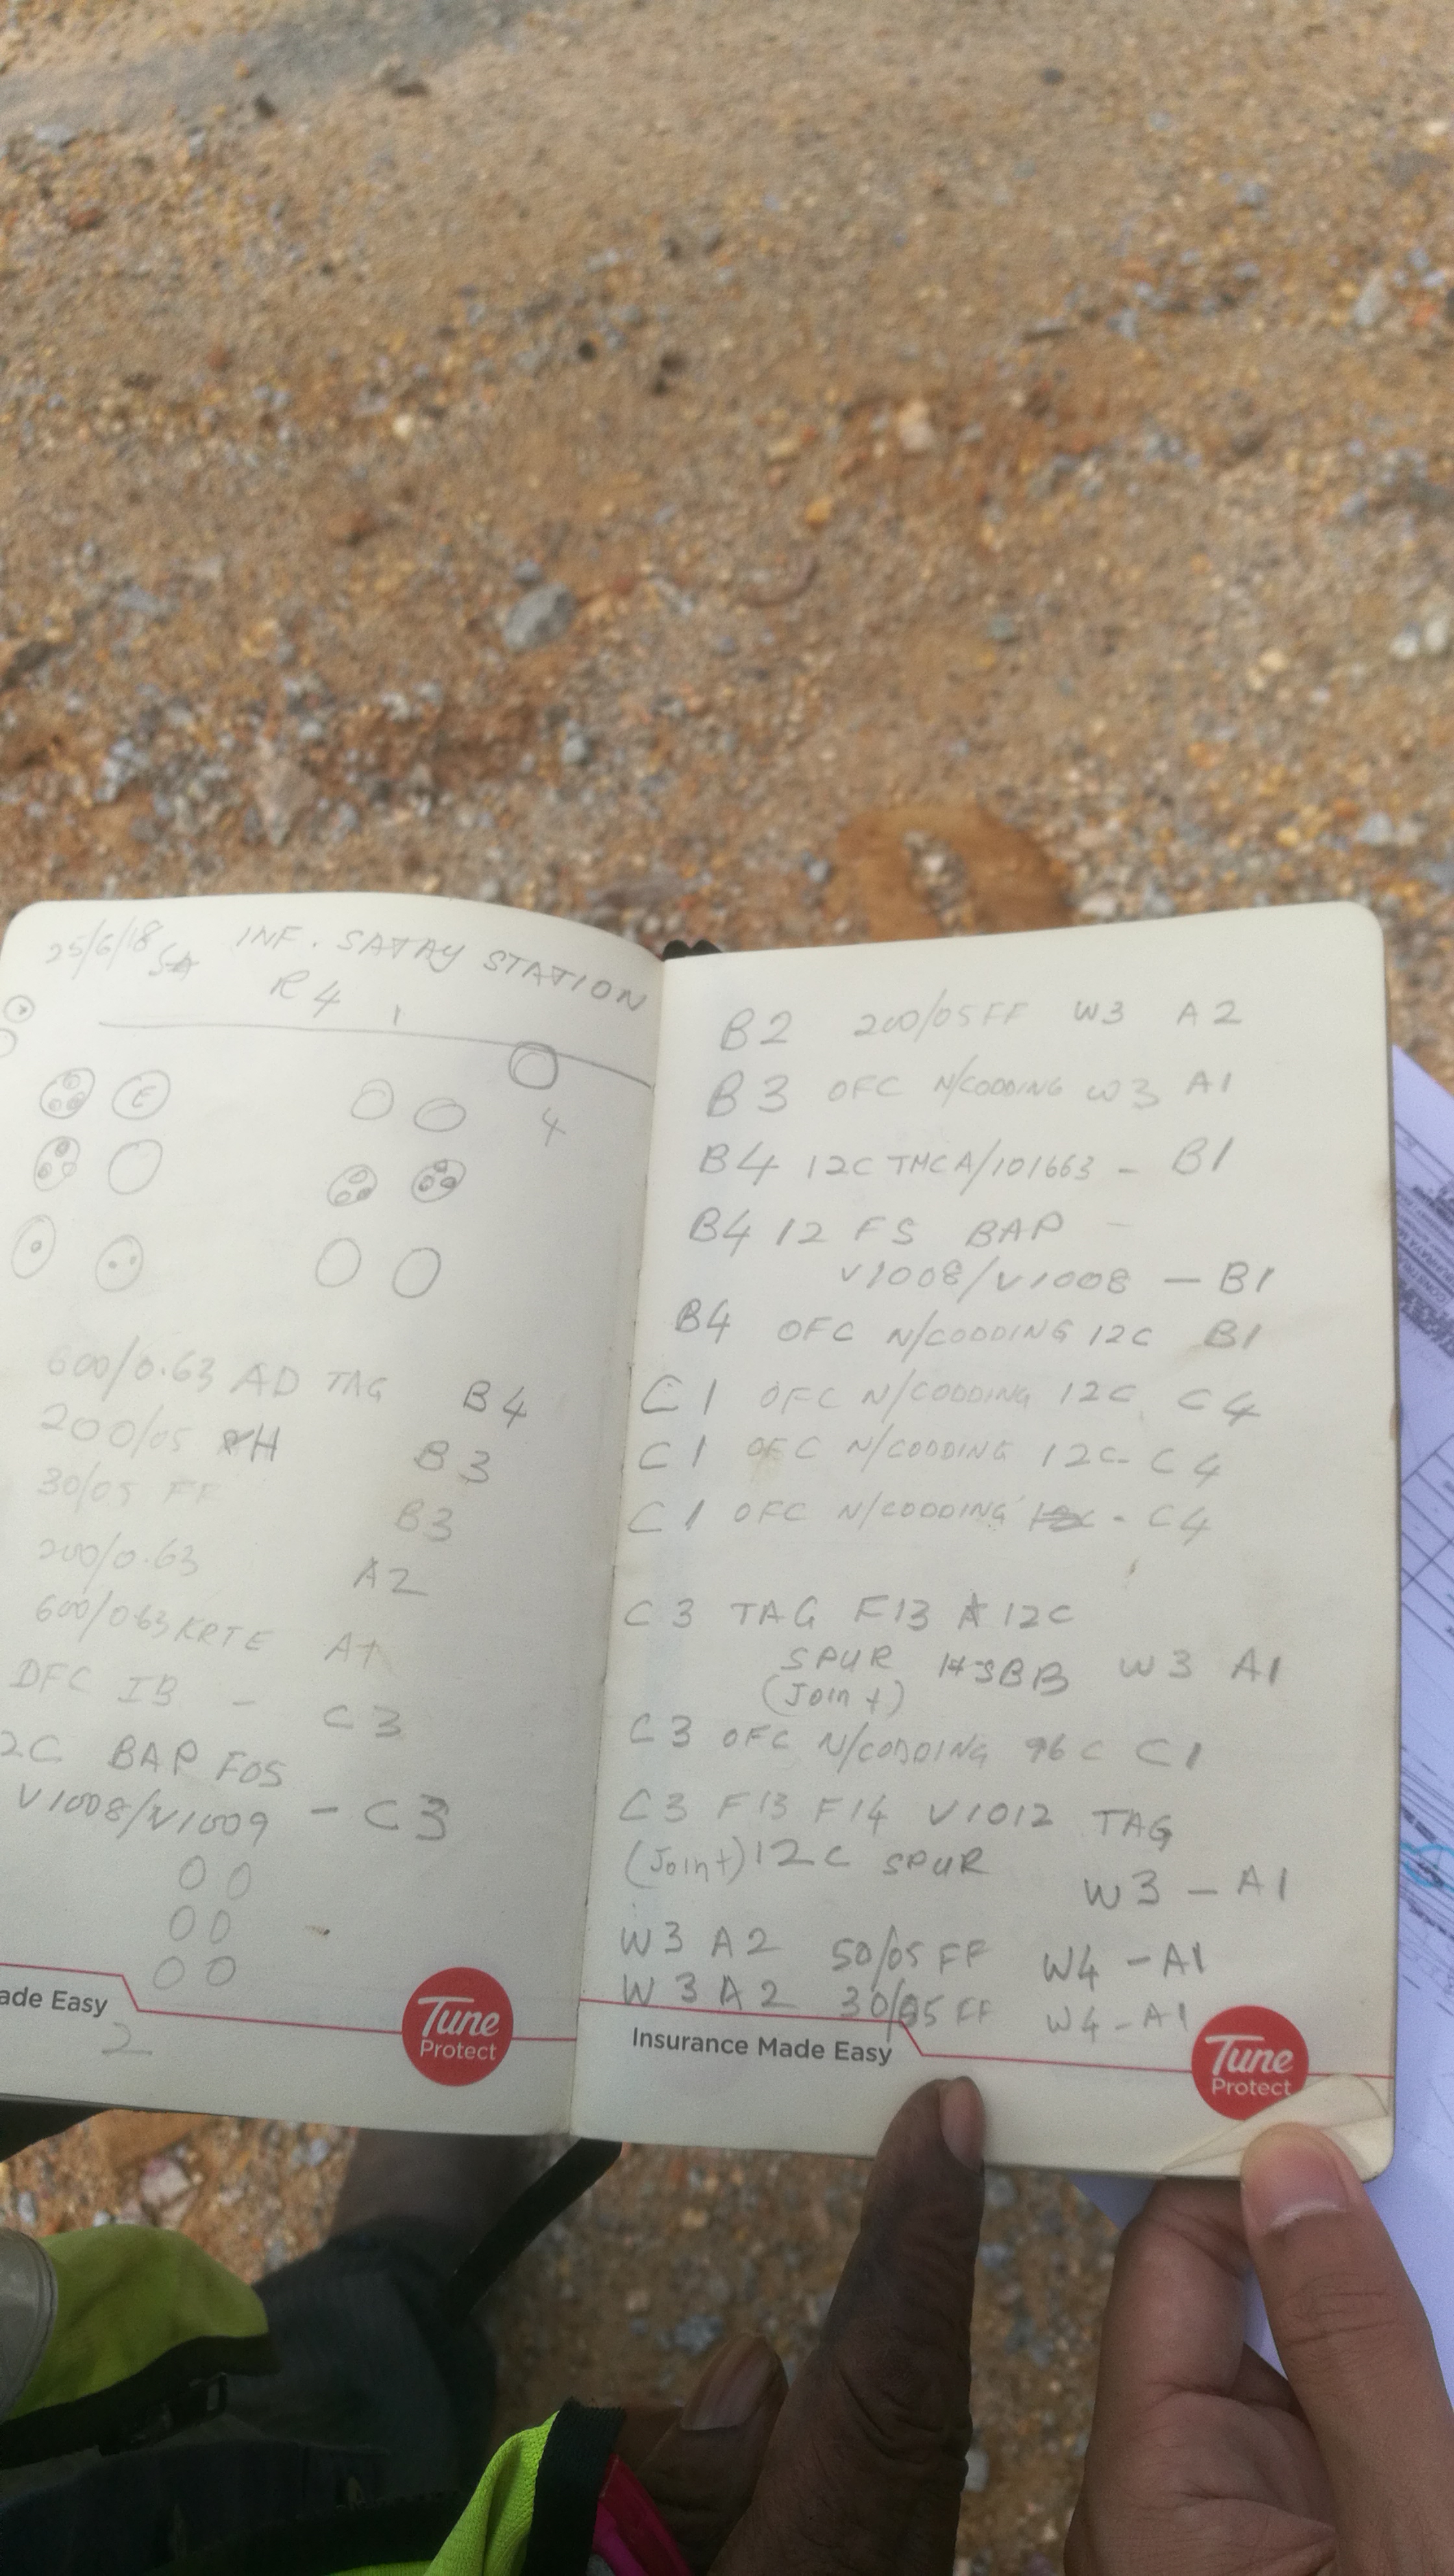 25/6/18 SA INF. SATAY STATION
R4 1
E
4
600/0.63 AD TAG B4
200/05 H B3
30/05 FF B3
200/0.63 A2
600/0.63 KRTE A1
OFC IB - C3
2C BAP FOS
V1008/V1009 - C3
ade Easy
2
Tune
Protect
B2 200/05 FF W3 A2
B3 OFC N/CODDING W3 A1
B4 12C TMCA/101663 - B1
B4 12 FS BAP -
V1008/V1008 - B1
B4 OFC N/CODDING 12C B1
C1 OFC N/CODDING 12C C4
C1 OFC N/CODDING 12C - C4
C1 OFC N/CODDING - C4
C3 TAG F13 12C
SPUR BB W3 A1
(Joint)
C3 OFC N/CODDING 96C C1
C3 F13 F14 V1012 TAG
(Joint) 12C SPUR
W3 - A1
W3 A2 50/05 FF W4 - A1
W3 A2 30/05 FF W4 - A1
Insurance Made Easy
Tune
Protect